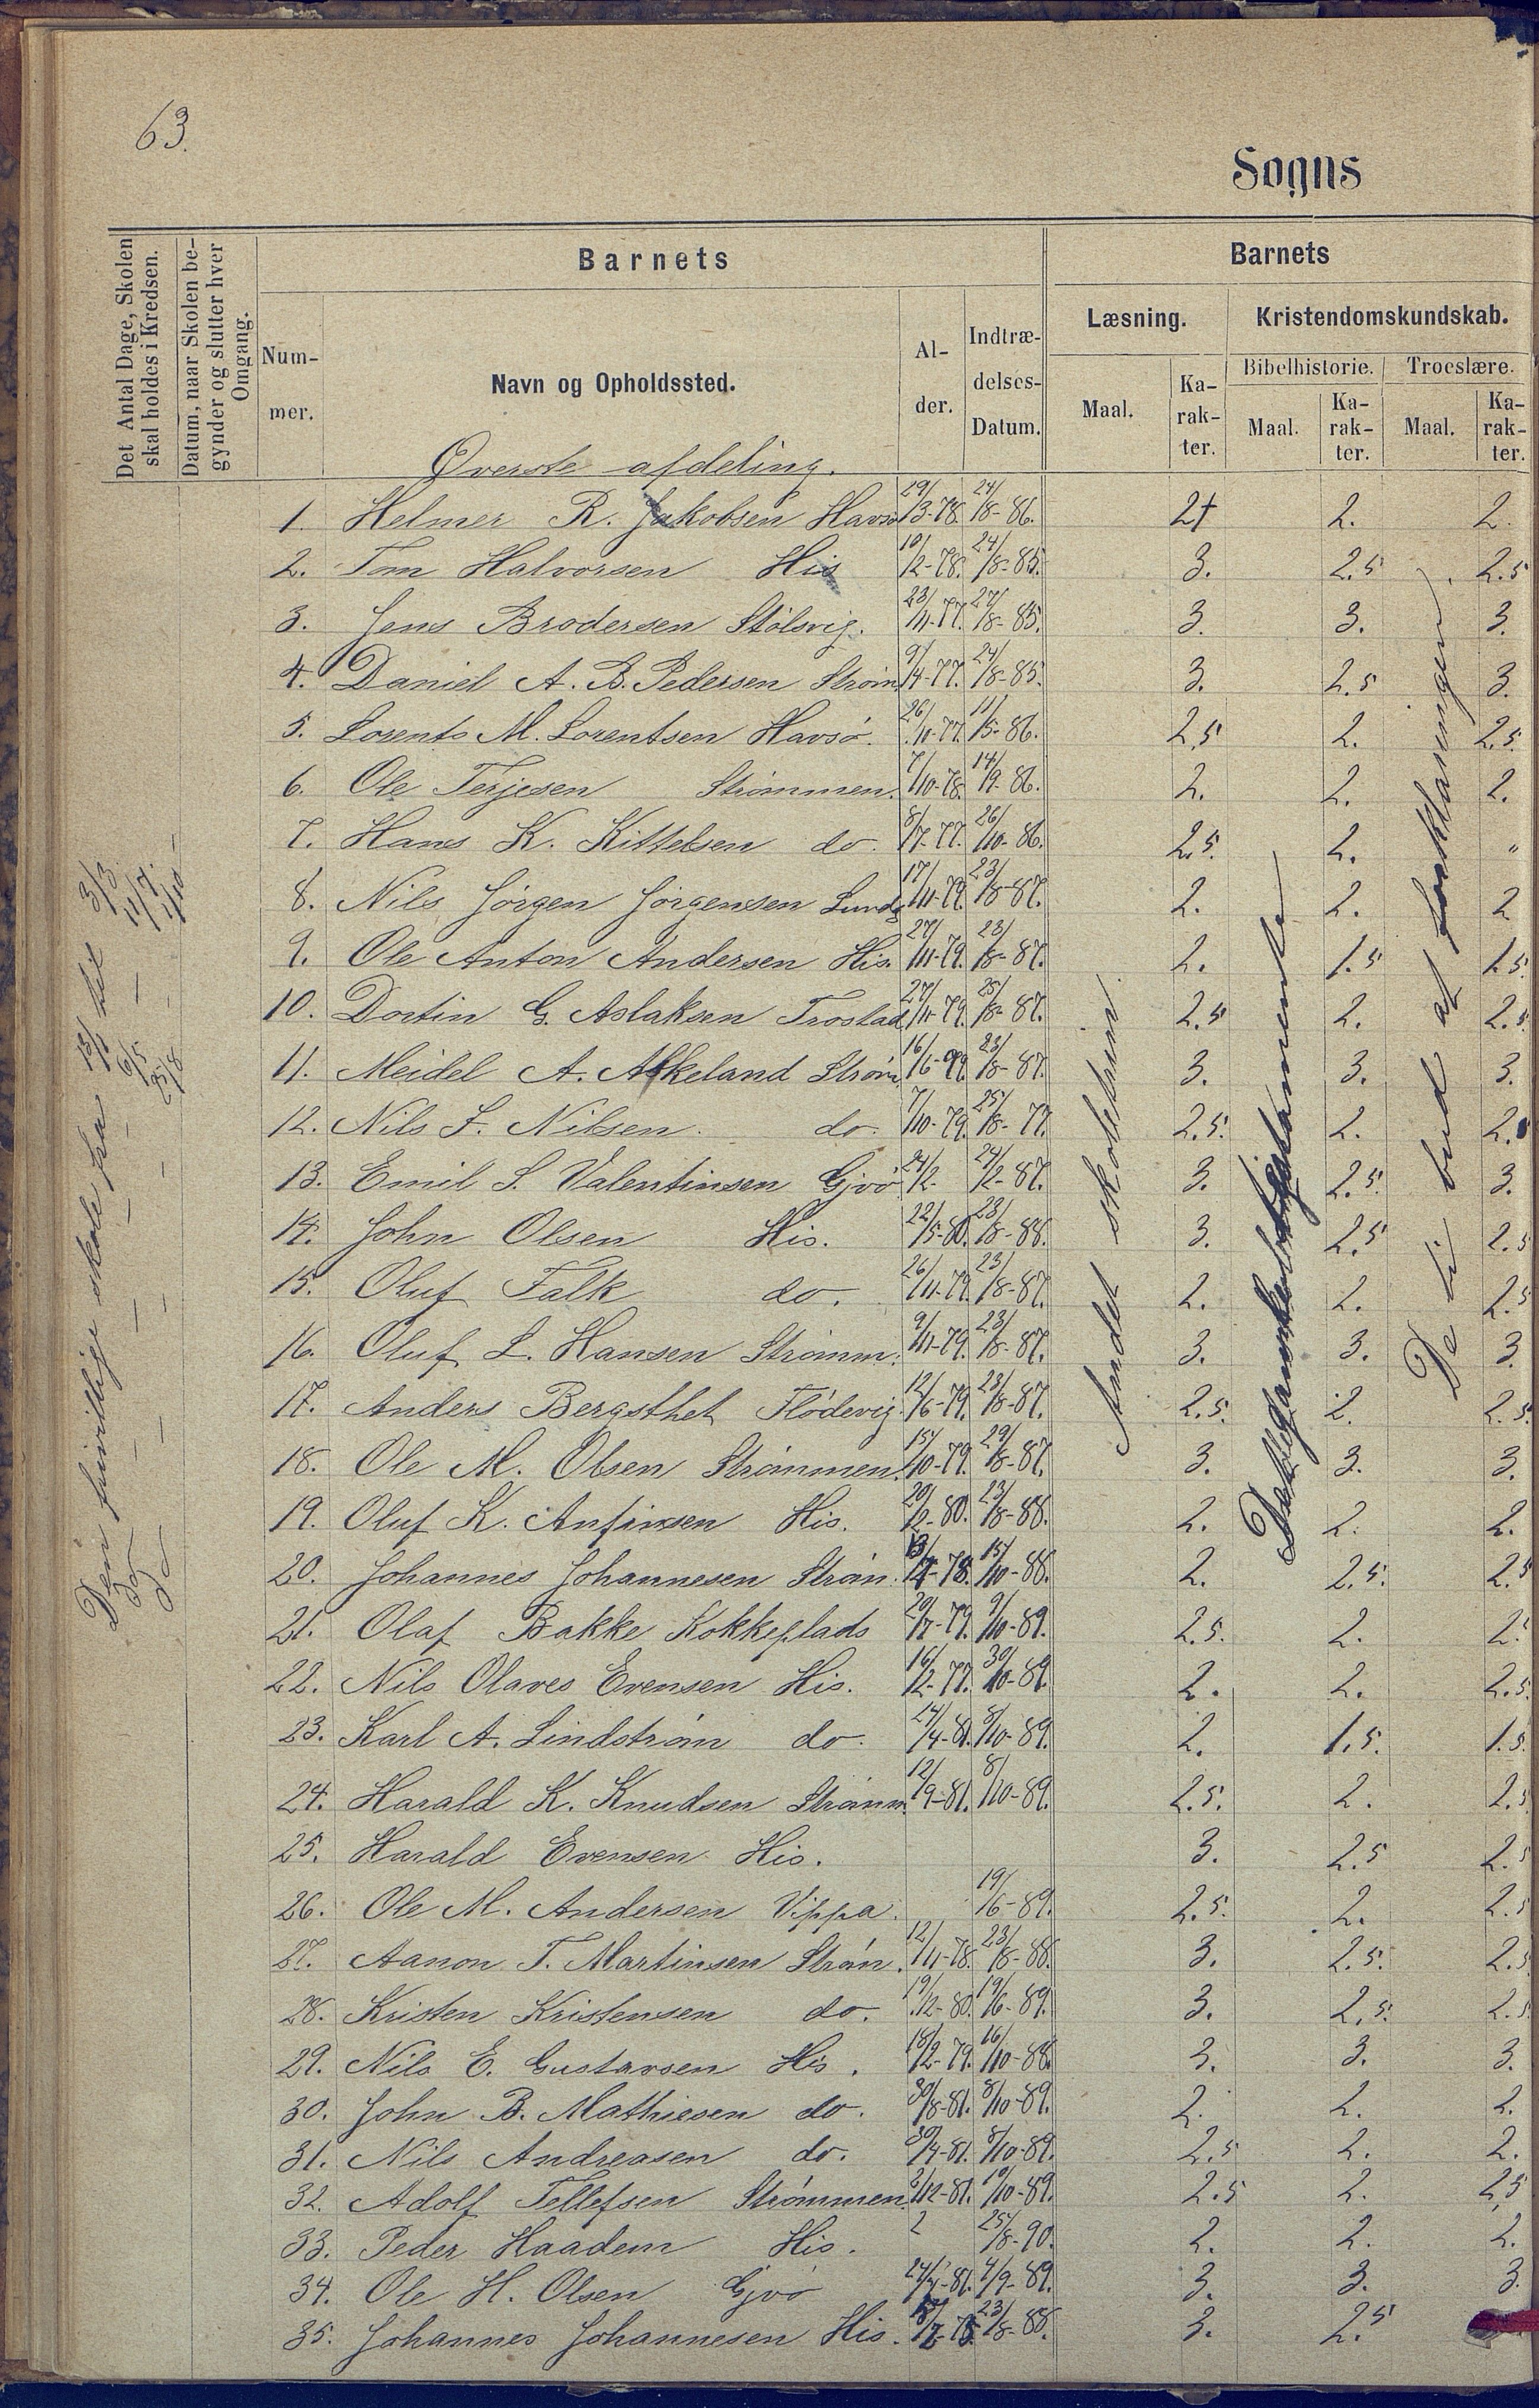 63.
Sogns
Det Antal Dage, Skolen skal holdes i Kredsen.
Datum, naar Skolen begynder og slutter hver Omgang.
Barnets
Barnets
Nummer.
Navn og Opholdssted.
Alder.
Indtrædelses-Datum.
Læsning.
Kristendomskundskab.
Bibelhistorie.
Troeslære.
Maal.
Karakter.
Maal.
Karakter.
Maal.
Karakter.
Øverste afdeling.
1. Helmer R. Jakobsen Havsø 29/3-78. 24/8-86. 2+ 2. 2.
2. Tom Halvorsen His 10/2-78. 24/8-85. 3. 2.5 2.5
3. Jens Brodersen Stølsvig. 23/11-77. 27/8-85. 3. 3. 3.
4. Daniel A. B. Pedersen Strøm 9/4-77. 24/8-85. 3. 2.5 3.
5. Lorents M. Lorentsen Havsø. 26/10-77. 11/5-86. 2.5 2. 2.5.
6. Ole Terjesen Strømmen. 7/10-78. 14/9-86. 2. 2. 2.
7. Hans K. Kittelsen do. 8/7-77. 26/10-86. 2.5. 2. "
8. Nils Jörgen Jörgensen Lund 17/11-79. 23/8-87. 2. 2. 2
9. Ole Anton Andersen His. 27/11-79. 23/8-87. 2. 1.5 1.5
10. Dortin G. Aslaksen Trostad 27/11-79. 25/8-87. 2.5 2. 2.5
11. Meidel A. Askeland Strøm 16/6-79. 23/8-87. 3. 3. 3.
12. Nils F. Nilsen. do. 7/10-79. 25/8-77. 2.5. 2. 2.
13. Emil S. Valentinsen Gjvø 24/2. 24/2-87. 3. 2.5. 3.
14. John Olsen His. 22/5-80. 23/8-88. 3. 2.5 2.5
15. Oluf Falk do. 26/11-79. 23/8-87. 2. 2. 2.5
16. Oluf L. Hansen Strømm. 9/11-79. 23/8-87. 3. 3. 3.
17. Anders Bergsthet Flødevig. 12/6-79. 23/8-87. 2.5. 2. 2.5.
18. Ole M. Olsen Strømmen. 15/10-79. 29/8-87. 3. 3. 3.
19. Oluf K. Anfinsen His. 20/2-80. 23/8-88. 2. 2. 2.
20. Johannes Johannesen Strøm. 15/10-88. 2. 2.5. 2.5
21. Olaf Bakke Kokkeplads 20/7-79. 9/10-89. 2.5. 2. 2.
22. Nils Olaves Evensen His. 16/2-77. 30/10-89. 2. 2. 2.5.
23. Karl A. Lindstrøm do. 24/4-81. 8/10-89. 2. 1.5. 1.5.
24. Harald K. Knudsen Strømm. 12/9-81. 8/10-89. 2.5. 2. 2.5
25. Harald Evensen His. 3. 2.5 2.5
26. Ole M. Andersen Vippa. 19/6-89. 2.5. 2. 2.5
27. Aanon T. Martinsen Strøm. 12/11-78. 23/8-88. 3. 2.5. 2.5
28. Kristen Kristensen do. 19/12-80. 19/6-89. 3. 2.5. 2.5
29. Nils E. Gustavsen His. 18/2-79. 16/10-88. 3. 3. 3.
30. John B. Mathiesen do. 30/8-81. 8/10-89. 2. 2. 2.
31. Nils Andreasen do. 30/4-81. 8/10-89. 2.5 2. 2.
32. Adolf Tellefsen Strømmen. 2/12-81. 10/10-89. 2.5 2. 2.5
33. Peder Haadem His. 2 25/8-90. 2. 2. 2.
34. Ole H. Olsen Gjvø 24/7-81. 4/9-89. 3. 3. 3.
35. Johannes Johannesen His. 23/8-88. 3. 2.5
Den frivillige skole fra 13/1 til 3/3
do — 6/5 — 11/7
do — 25/8 — 1/10
Andet skoletrin.
Det gamle testamente
De ti bud af forklaringen